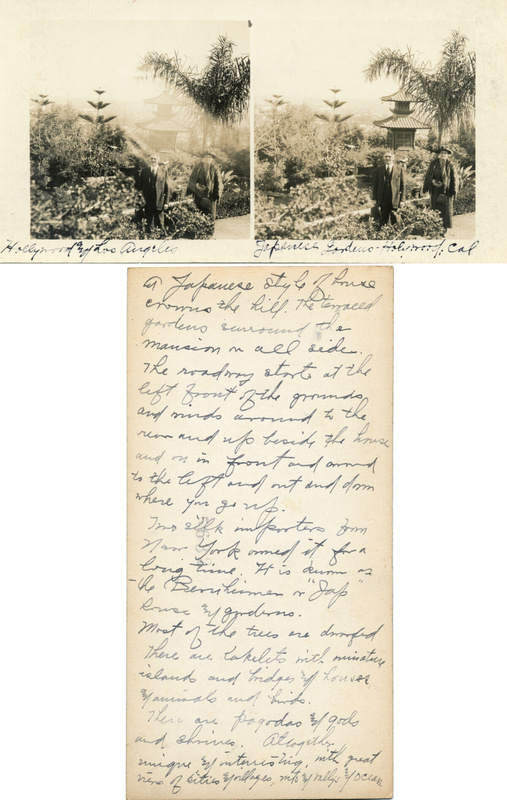 Hollywood & Los Angeles
Japanese Gardens - Hollywood, Cal
A Japanese style of house
crowns the hill. The terraced
gardens surround the
mansion on all side.
The roadway starts at the
left front of the grounds
and winds around to the
rear and up beside the house
and on in front and around
to the left and out and down
where you go up.
Two silk importers from
New York owned it for a
long time. It is known as
the Bernheimer or "Jap"
house & gardens.
Most of the trees are dwarfed
There are Lakelets with miniature
islands and bridges & houses
& animals and birds.
There are pagodas & gods
and shrines. Altogether
unique & interesting, with great
views of cities & villages, mts & valleys & ocean.